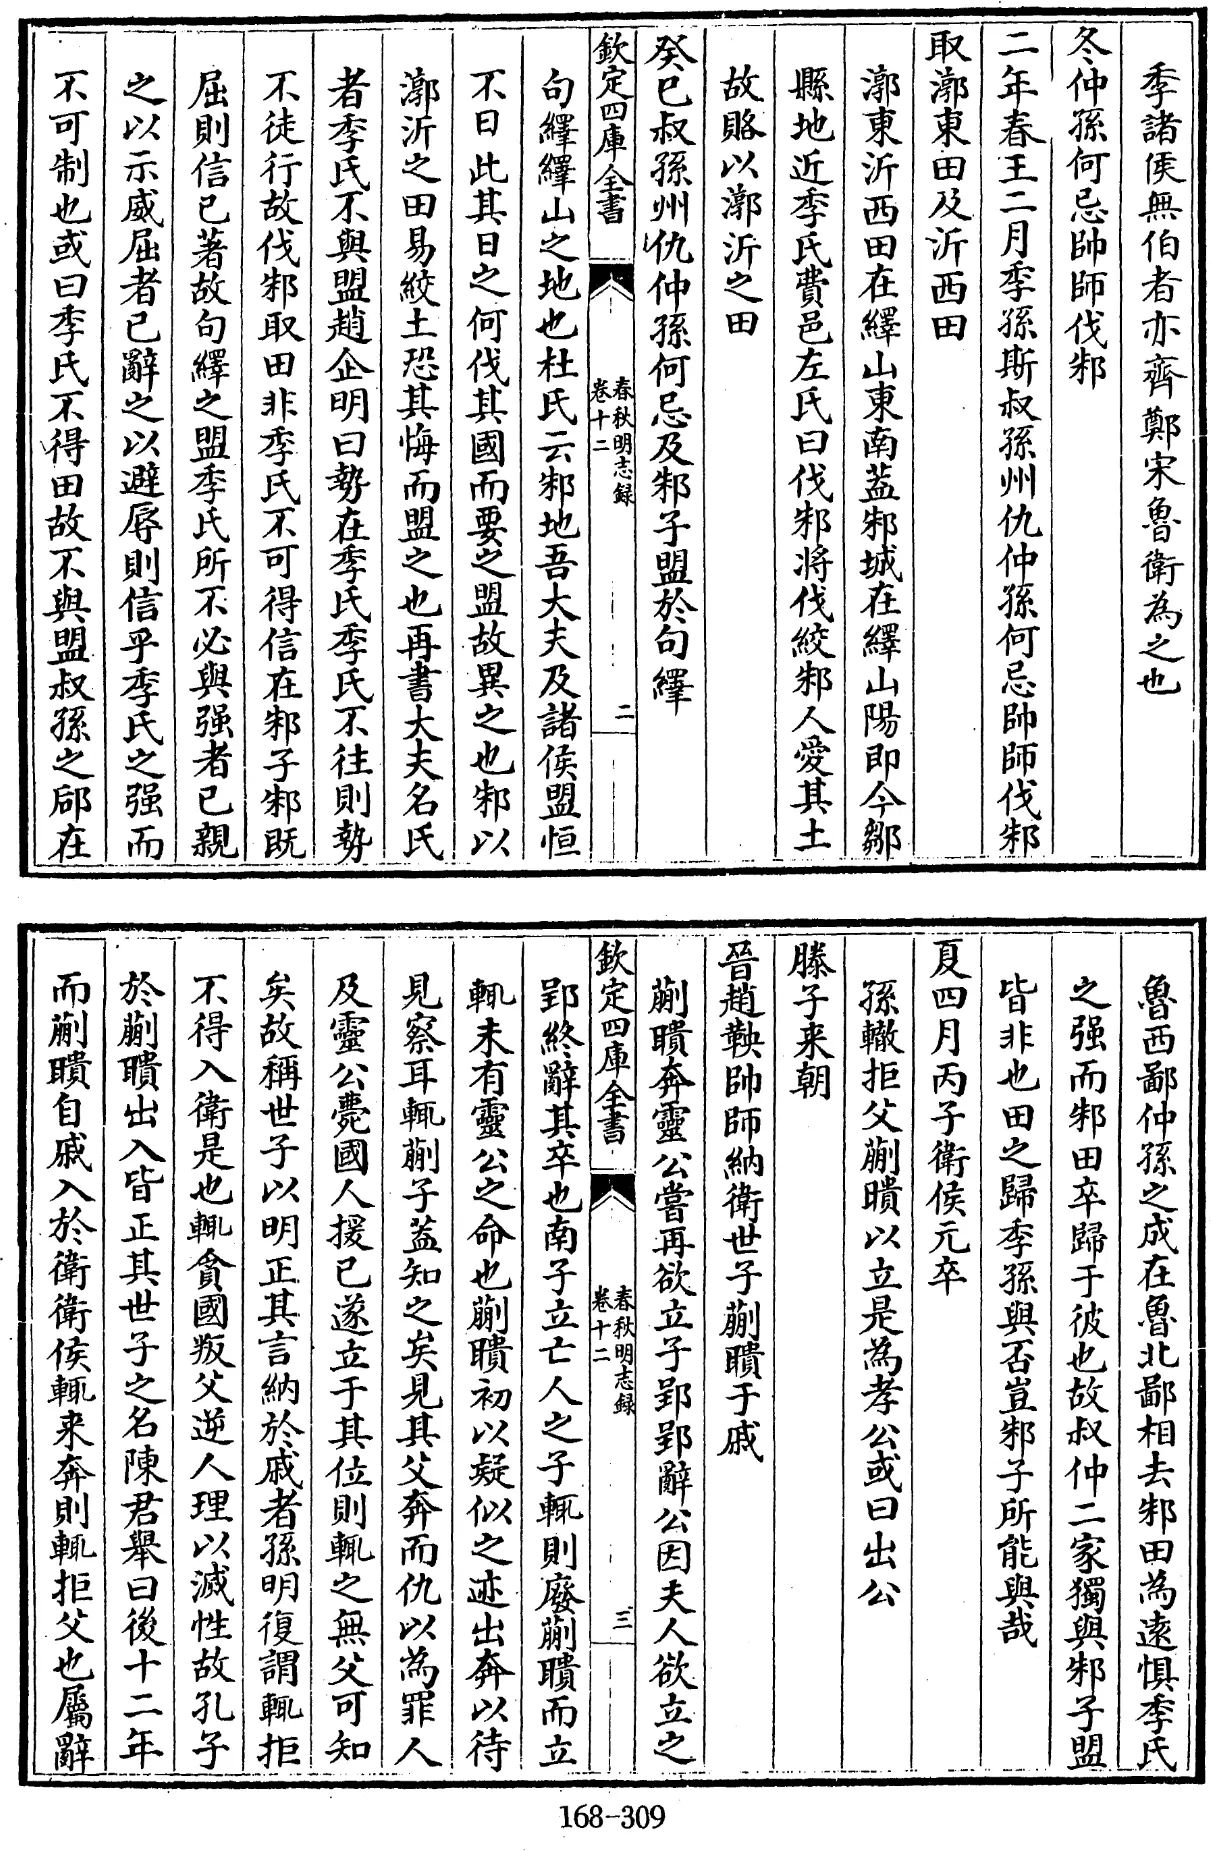 季諸侯無伯者亦齊鄭宋魯衛為之也
冬仲孫何忌帥師伐邾
二年春王二月季孫斯叔孫州仇仲孫何忌帥師伐邾
取漷東田及沂西田
漷東沂西田在繹山東南葢邾城在繹山陽即今鄒
縣地近季氏費邑左氏曰伐邾将伐絞邾人愛其土
故賂以漷沂之田
癸巳叔孫州仇仲孫何忌及邾子盟於句繹
欽定四庫全書
春秋明志録
卷十二
二
句繹繹山之地也杜氏云邾地吾大夫及諸侯盟恒
不日此其日之何伐其國而要之盟故異之也邾以
漷沂之田易絞土恐其悔而盟之也再書大夫名氏
者季氏不與盟趙企明曰勢在季氏季氏不往則勢
不徒行故伐邾取田非季氏不可得信在邾子邾既
屈則信已著故句繹之盟季氏所不必與强者已親
之以示威屈者已辭之以避辱則信乎季氏之强而
不可制也或曰季氏不得田故不與盟叔孫之郈在
魯西鄙仲孫之成在魯北鄙相去邾田為遠惧季氏
之强而邾田卒歸于彼也故叔仲二家獨與邾子盟
皆非也田之歸季孫與否豈邾子所能與哉
夏四月丙子衛侯元卒
孫轍拒父蒯聵以立是為孝公或曰出公
滕子来朝
晉趙鞅帥師納衛世子蒯聵于戚
蒯聵奔靈公嘗再欲立子郢郢辭公因夫人欲立之
欽定四庫全書
春秋明志録
卷十二
三
郢終辭其卒也南子立亡人之子輒則廢蒯聵而立
輒未有靈公之命也蒯聵初以疑似之迹出奔以待
見察耳輒蒯子葢知之矣見其父奔而仇以為罪人
及靈公薨國人援已遂立于其位則輒之無父可知
矣故稱世子以明正其言納於戚者孫明復謂輒拒
不得入衛是也輒貪國叛父逆人理以滅性故孔子
於蒯聵出入皆正其世子之名陳君舉曰後十二年
而蒯聵自戚入於衛衛侯輒来奔則輒拒父也屬辭
168-309